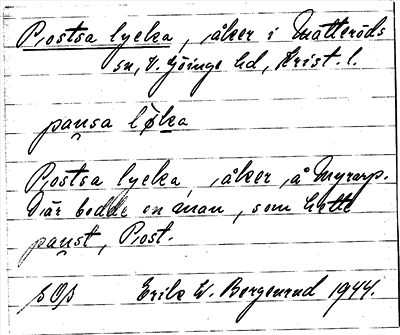 Postsa lycka, åker i Matteröds
sn, V. Göinge hd, Krist. l.
pau̯sa løka
Postsa lycka, åker å Myrarp.
Där bodde en man, som hette
pau̯st, Post.
Erik W. Bergenrud 1944.